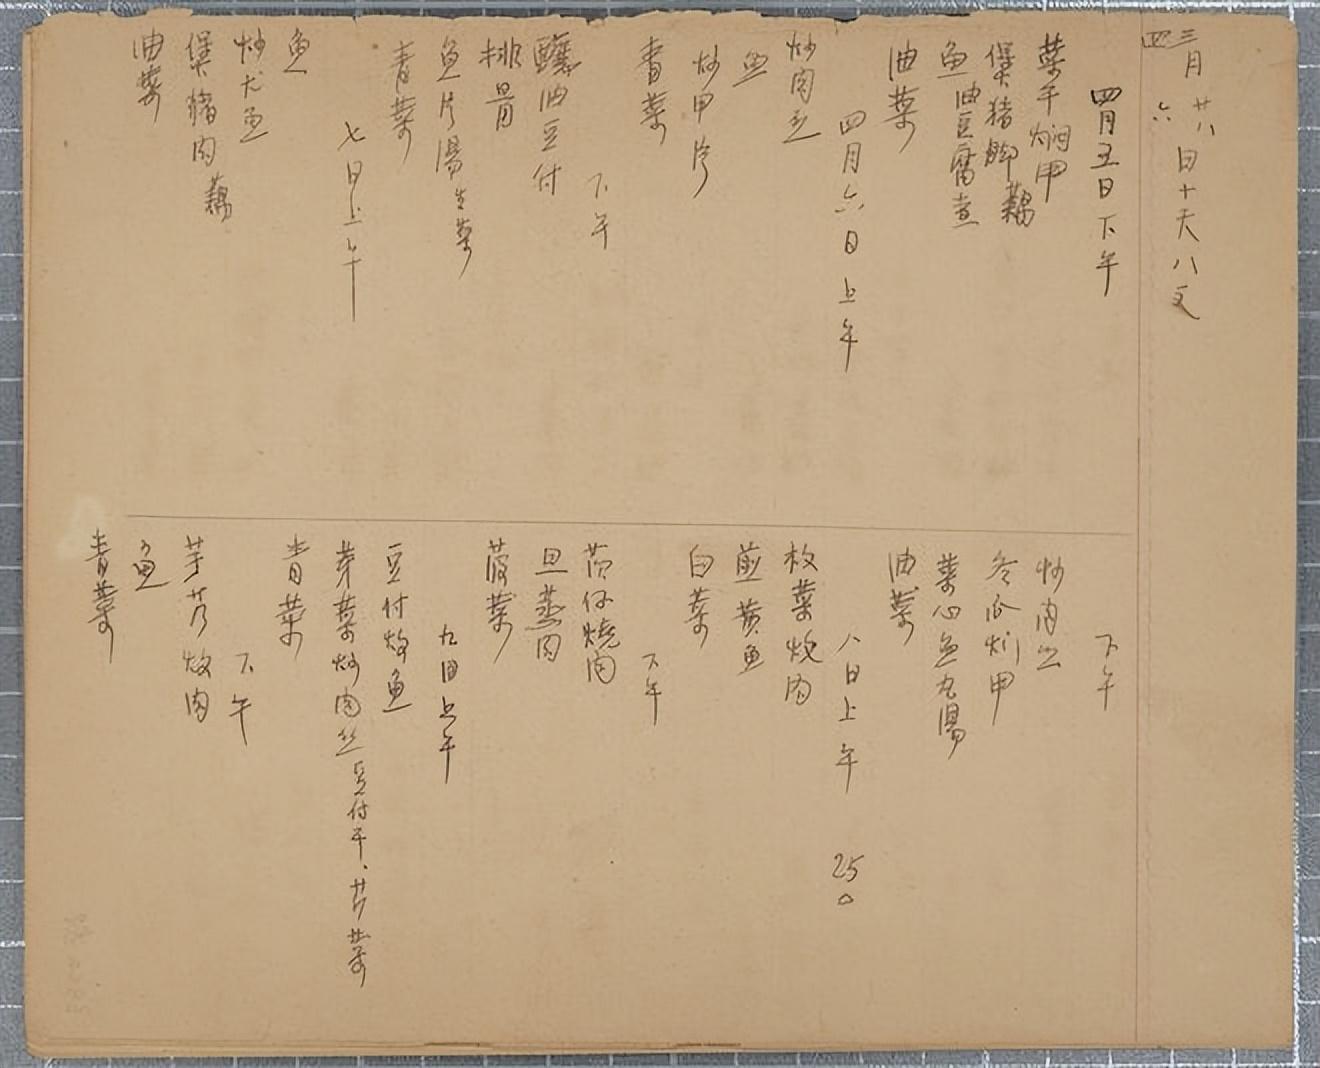 三月廿八日十天八文
四 六
四月五日下午
菜干焖甲
煲猪脚 藕
魚油豆腐煮
油菜
四月六日上午
炒肉丝
魚
炒甲片
青菜
下午
釀油豆付
排骨
魚片湯生菜
青菜
七日上午
魚
炒尤魚
煲猪肉藕
油菜
下午
炒肉丝
冬瓜炆甲
菜心魚丸湯
油菜
八日上午 250
枚菜炆肉
煎黄魚
白菜
下午
茄仔燒肉
旦蒸肉
菠菜
九日上午
豆付炆魚
芽菜炒肉丝豆付干、芹菜
青菜
下午
芋艿炆肉
魚
青菜